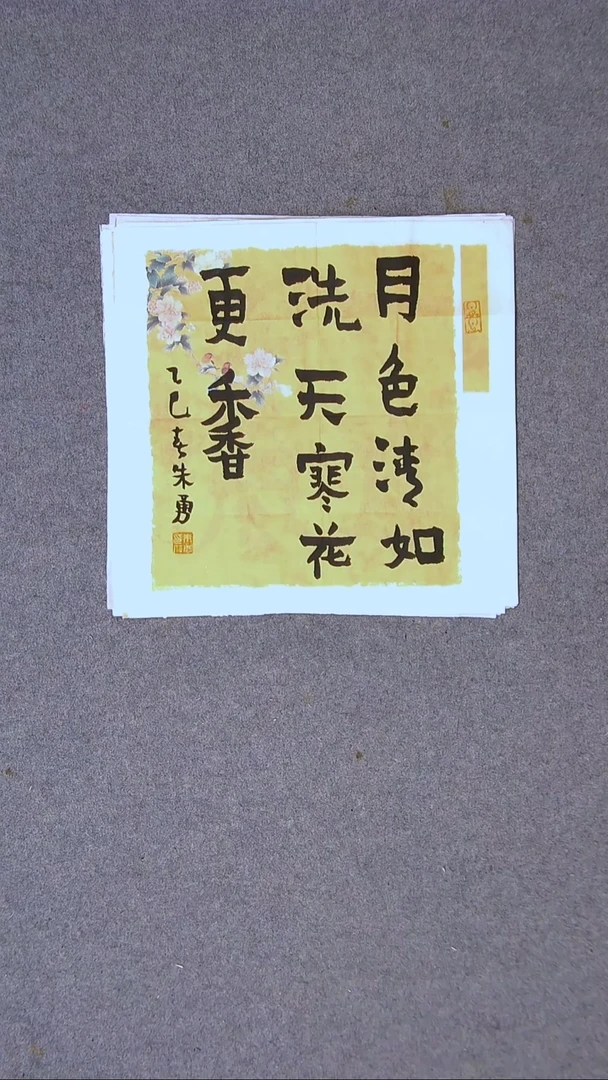 月色清如
洗天寒花
更香
乙巳春朱勇